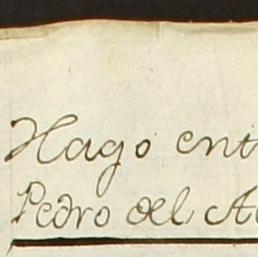 Hago ent
Pedro del A